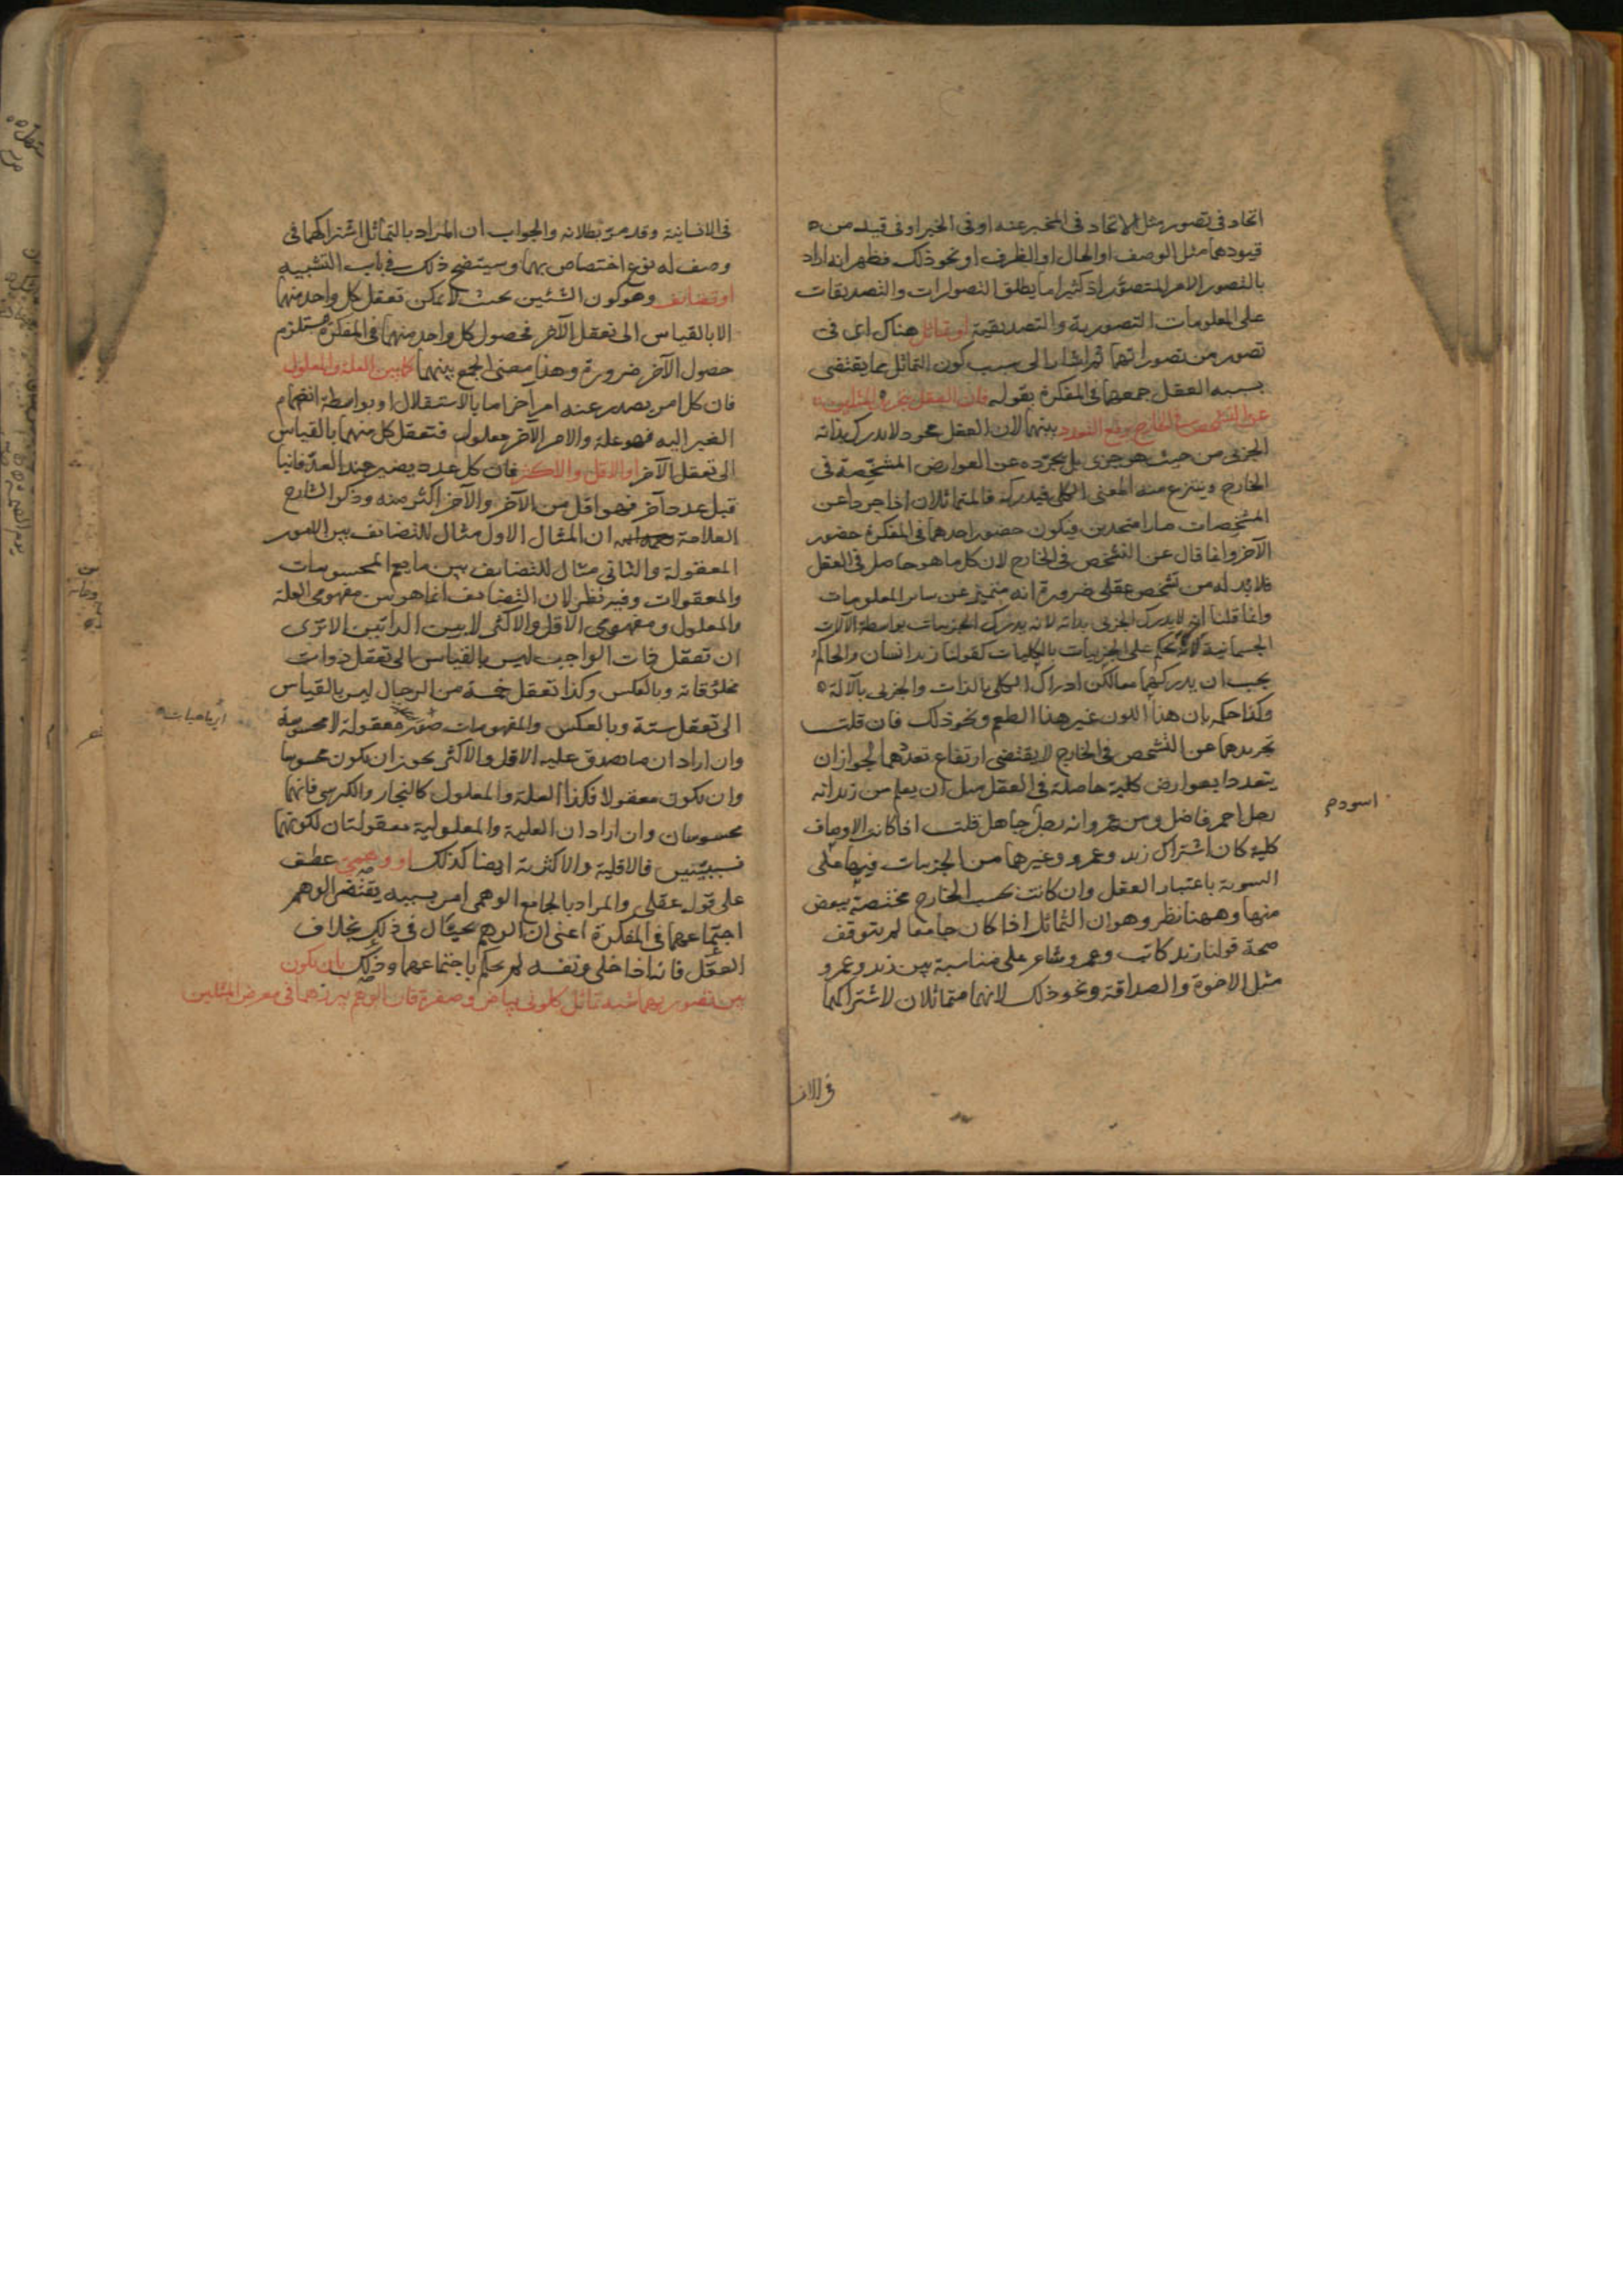 اتحاد فى تصور مثل الاتحاد فى المخبر عنه او فى الخبر او فى قيد من
قيودهما مثل الوصف او الحال او الظرف او نحو ذلك فظهر انه اراد
بالتصور الامر المتصور اذ كثيرا ما يطلق التصورات والتصديقات
على المعلومات التصورية والتصديقية او تماثل هناك اى فى
تصور من تصوراتهما ثم اشار الى سبب كون التماثل مما يقتضى
بسببه العقل جمعهما فى المفكرة بقوله فان العقل بتجريده المثلين
عن التشخص فى الخارج يرفع التعدد بينهما لان العقل مجرد لا يدرك بذاته
الجزئى من حيث هو جزئى بل يجرده عن العوارض المشخصة فى
الخارج وينتزع منه المعنى الكلى فيدركه فالمتماثلان اذا جردا عن
المشخصات صارا متحدين فيكون حضور احدهما فى المفكرة حضور
الآخر وانما قال عن التشخص فى الخارج لان كل ما هو حاصل فى العقل
فلابد له من تشخص عقلى ضرورة انه متميز عن سائر المعلومات
وانما قلنا انه لا يدرك الجزئى بذاته لانه يدرك الجزئيات بواسطة الآلات
الجسمانية لانه يحكم على الجزئيات بالكليات كقولنا زيد انسان والحاكم
يجب ان يدركهما معا لكن ادراك الكلى بالذات والجزئى بالآلة
وكذا حكمه بان هذا اللون غير هذا الطعم ونحو ذلك فان قلت
تجريدهما عن التشخص فى الخارج لا يقتضى ارتفاع تعددهما لجواز ان
يتعددا بعوارض كلية حاصلة فى العقل مثل ان يعلم من زيد انه
رجل احمر فاضل ومن عمرو انه رجل جاهل قلت اذا كانت الاوصاف
اسود م
كلية كان اشتراك زيد وعمرو وغيرهما من الجزئيات فيها على
السوية باعتبار العقل وان كانت بحسب الخارج مختصة ببعض
منها وههنا نظر وهو ان التماثل اذا كان جامعا لم يتوقف
صحة قولنا زيد كاتب وعمرو شاعر على مناسبة بين زيد وعمرو
مثل الاخوة والصداقة ونحو ذلك لانهما متماثلان لاشتراكهما
فى الان
فى الانسانية وقد مر بطلانه والجواب ان المراد بالتماثل اشتراكهما فى
وصف له نوع اختصاص بهما وسيتضح ذلك فى باب التشبيه
او تضايف وهو كون الشئين بحيث لا يمكن تعقل كل واحد منهما
الا بالقياس الى تعقل الآخر فحصول كل واحد منهما فى المفكرة يستلزم
حصول الآخر ضرورة وهذا معنى الجمع بينهما كما بين العلة والمعلول
فان كل امر يصدر عنه امر آخر اما بالاستقلال او بواسطة انضمام
الغير اليه فهو علة والامر الآخر معلول فتعقل كل منهما بالقياس
الى تعقل الآخر او الاقل والاكثر فان كل عدد يصير عند العد فانيا
قبل عدد آخر فهو اقل من الآخر والآخر اكثر منه وذكر الشارح
العلامة ان المثال الاول مثال للتضايف بين الامور
المعقولة والثانى مثال للتضايف بين ما يعم المحسوسات
والمعقولات وفيه نظر لان التضايف انما هو بين مفهومى العلة
والمعلول ومفهومى الاقل والاكثر لا بين الذاتين الا ترى
ان تعقل ذات الواجب ليس بالقياس الى تعقل ذوات
مخلوقاته وبالعكس وكذا تعقل خمسة من الرجال ليس بالقياس
الى تعقل ستة وبالعكس والمفهومات صور معقولة لا محسوسة
وان اراد ان ما يصدق عليه الاقل والاكثر يجوز ان يكون محسوسا
وان يكون معقولا فكذا العلة والمعلول كالنجار والكرسى فانهما
محسوسان وان اراد ان العلية والمعلولية معقولتان لكونهما
نسبيتين فالاقلية والاكثرية ايضا كذلك او وهمى عطف
على قوله عقلى والمراد بالجامع الوهمى امر بسببه يقتضى الوهم
اجتماعهما فى المفكرة اعنى ان الوهم يحتال فى ذلك بخلاف
العقل فانه اذا خلى ونفسه لم يحكم باجتماعهما وذلك بان يكون
بين تصوريهما شبه تماثل كلونى بياض وصفرة فان الوهم يبرزهما فى معرض المثلين